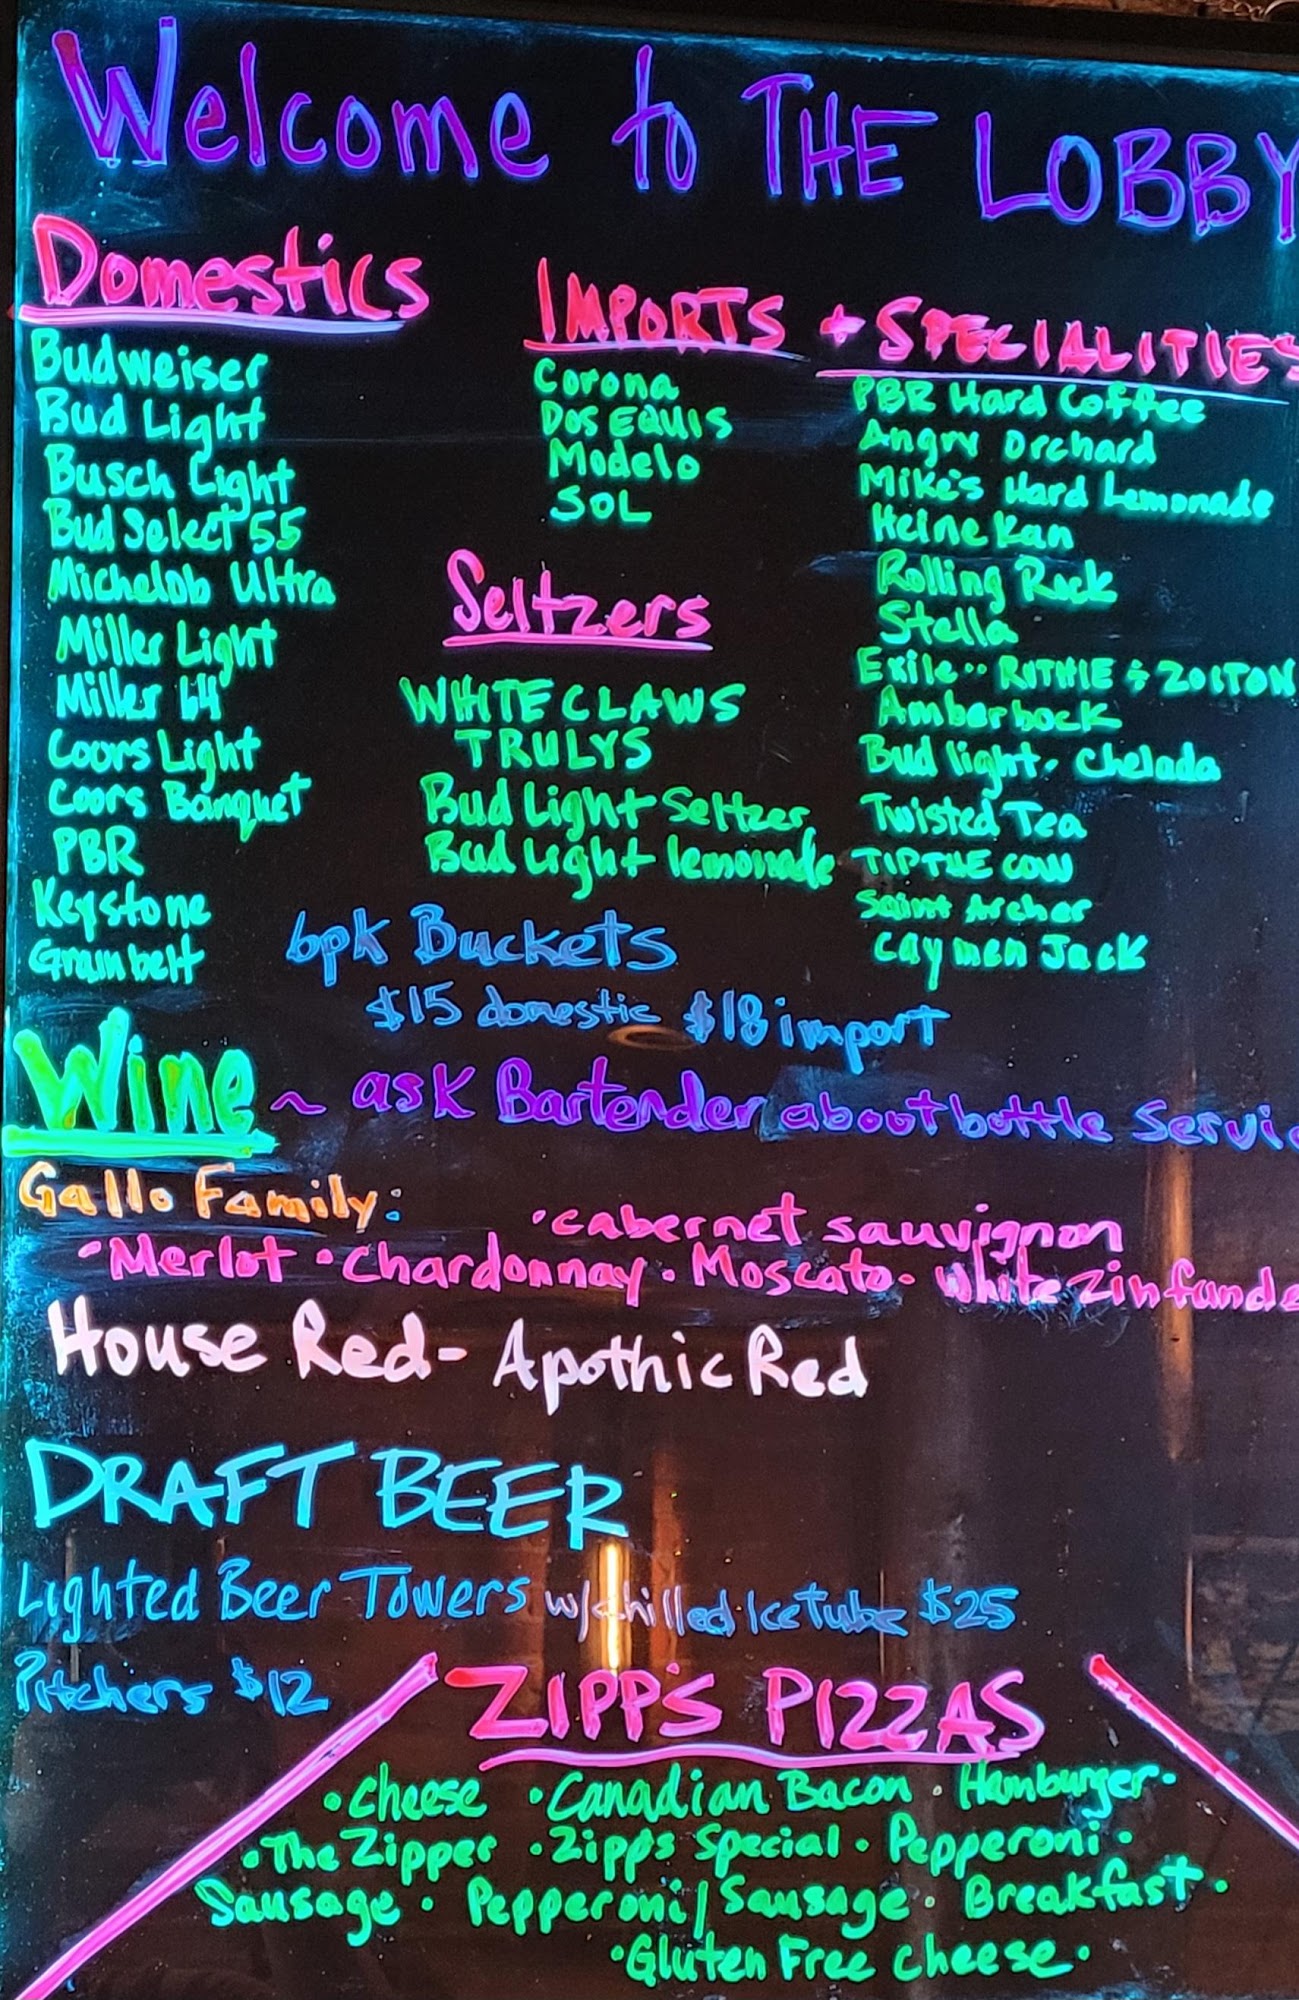 Welcome to THE LOBBY
Domestics
Budweiser
Bud Light
Busch Light
Bud Select 55
Michelob Ultra
Miller Light
Miller 64
Coors Light
Coors Banquet
PBR
Keystone
Grainbelt
IMPORTS + SPECIALITIES
Corona
DOS EQUIS
Modelo
SOL
PBR Hard Coffee
Angry Orchard
Mike's Hard Lemonade
HeineKan
Rolling Rock
Stella
Exile.. RUTHIE & ZOLTON
Amberbock
Bud light - Chelada
Twisted Tea
TIP THE COW
Saint Archer
Caymen Jack
Seltzers
WHITE CLAWS
TRULYS
Bud Light Seltzer
Bud Light lemonade
6pk Buckets
$15 domestic $18 import
Wine ~ ask Bartender about bottle Servic
Gallo Family:
• cabernet sauvignon
• Merlot • Chardonnay • Moscato • White Zinfande
House Red - Apothic Red
DRAFT BEER
Lighted Beer Towers w/chilled Ice tube $25
Pitchers $12
ZIPP'S PIZZAS
• Cheese • Canadian Bacon • Hamburger •
• The Zipper • Zipp's Special • Pepperoni •
Sausage • Pepperoni/Sausage • Breakfast •
• Gluten Free Cheese •